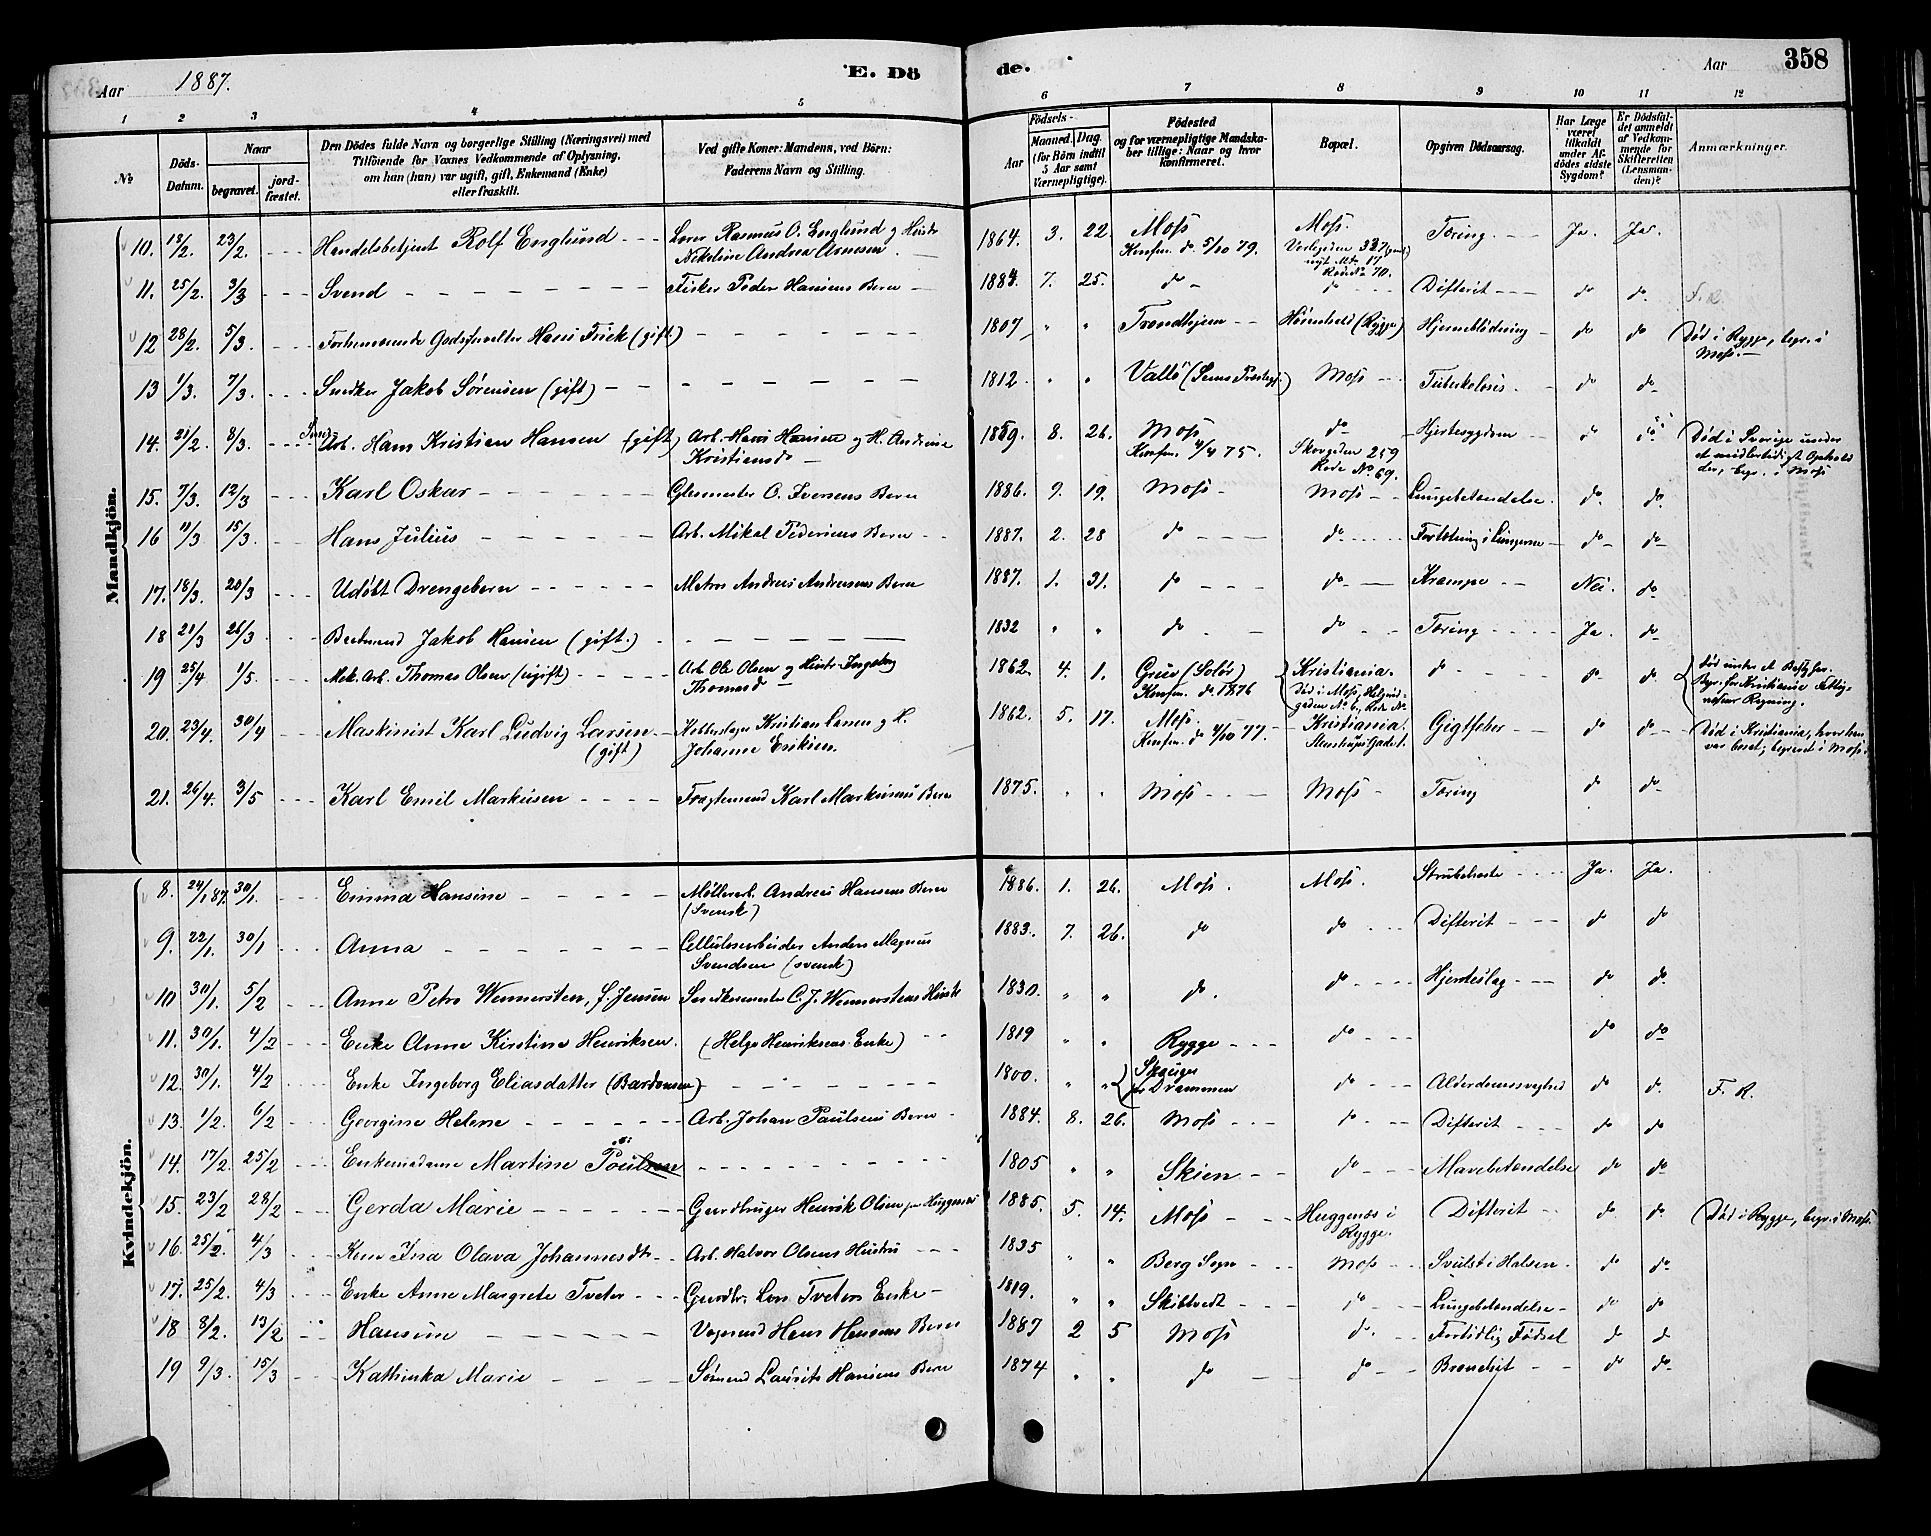 Aar 1887. E. Dö
de. Aar 358
1 2 3 4 5 6 7 8 9 10 11 12
№
Döds-
Datum.
Naar
begravet.
jord-
fæstet.
Den Dödes fulde Navn og borgerlige Stilling (Næringsvei) med
Tilföiende for Voxnes Vedkommende af Oplysning,
om han (hun) var ugift, gift, Enkemand (Enke)
eller fraskilt.
Ved gifte Koner: Mandens, ved Börn:
Faderens Navn og Stilling.
Födsels-
Aar
Maaned. Dag.
(for Börn indtil
5 Aar samt
Værnepligtige).
Födested
og for værnepligtige Mandska-
ber tillige: Naar og hvor
konfirmeret.
Bopæl.
Opgiven Dödsaarsag.
Har Læge
været
tilkaldt
under Af-
dödes sidste
Sygdom?
Er Dödsfal-
det anmeldt
af Vedkom-
mende for
Skifteretten
(Lensman-
den)?
Anmærkninger.
Mandkjön.
10. 23/2. Handelsbetjent Rolf Englund Rasmus O. Englund g Hustr 1864. 3. 22. Moss Moss. Tæring. Ja. Ja.
Andrea Konfm. do 5/10 79.
11. 25/2. 3/3 Svend Fisker Peder Hansens Barn 1884 7. 25. do do Difterit do do F. R.
12 28/2. 5/3. Forhenværende Godsforvalter Hans Frick (gift) 1807 " " Trondhjem (Rygge) Hjerneblödning do do Död i Rygge, begr. i
Moss.
13 1/3. 7/3. Snedker Jakob Sörensen (gift) 1812 " " Vallö Moss Tuberkelosis. do do
14. 21/2. 8/3. Arb. Hans Kristian Hansen (gift) Arb. Hans Hansen og H. Andrine 1859. 8. 26. Moss do Hjertesygdom do do Död i Sverige under
Kristiansd Konfm. 4/4 75. Skovgaden 259 et midlertidigt Ophold
Rode No 69. der, begr. i Moss
15. 7/3. 12/3 Karl Oskar Glasmester O. Iversens Barn 1886. 9. 19. Moss Moss Lungebetændelse. do. do.
16 11/3 15/3. Hans Julius Arb. Mikal Pedersens Barn 1887. 2. 28 do do Fortætning i Lungerne do do
17. 18/3. 20/3 Udöbt Drengebarn Andreas Andresens Barn 1887. 1. 31. do do Krampe Nei. do
18 21/3 26/3. Jakob Hansen (gift.) 1832 " " do do Tæring Ja. do
19 25/4 1/5. Mek. Arb. Thomas Olsen (ugift) Arb. Ole Olsen og Hustr. Ingeborg 1862. 4. 1. Grue (Solör) Kristiania. do do do
Thomasd Konfm. do 1876 Död i Moss,
20. 23/4. 30/4 Maskinist Karl Ludvig Larsen Kobberslager Kristian Larsen og H. 1862. 5. 17. Moss. Kristiania. Gigtfeber do do Död i Kristiania, hvor han
(gift) Johanne Eriksen. Konfm. do 4/10 77. Stenstrups Gade 1. var bosat, begravet i Moss
21. 26/4. 3/5 Karl Emil Markusen Fragtemand Karl Markusens Barn 1875. " " Moss Moss Tæring do do
Kvindekjön.
8. 24/1 87. 30/1. Emma Hansine Möllerarb. Andreas Hansens Barn 1886. 1. 26. Moss. Moss. Strubehoste Ja. Ja.
(Svensk)
9. 22/1. 30/1 Anna Cellulosearbeider Anders Magnus 1883. 7. 26. do do Difterit do do
Svendsen (svensk)
10 30/1. 5/2 Anne Petra Wennersten, f. Jensen Snedkermester C. J. Wennerstens Hustr 1830. " " do. do Hjerteslag do do.
11. 30/1. 4/2 Enke Anne Kirstine Henriksen. (Helge Henriksens Enke) 1819 " " Rygge do do do
12 30/1. 4/2 Enke Ingeborg Eliasdatter (Bardonsen) 1800. " " Skauger do Alderdomssvaghed do do. F. R.
Drammen
13. 1/2. 6/2 Georgine Helene Arb. Johan Paulsens Barn 1884. 8. 26. Moss do Difterit do do
14. 17/2. 25/2 Enkemadame Martine Poulsen 1805 " " Skien do Mavebetændelse do do
15. 23/2 28/2 Gerda Marie Gaardbruger Henrik Olsen paa Huggenæs 1885. 5. 14. Moss Huggenæs i Difterit do. do. Död i Rygge, begr. i Moss.
Rygge.
16. 25/2. 4/3 Kone Ina Olava Johannesdtr Arb. Halvor Olsens Hustru 1835 " " Berg Sogn Moss Svulst i Halsen. do do
17. 25/2. 4/3 Enke Anne Margrete Tveter Gaardbr. Lars Tveters Enke 1819. " " Skibtvedt do Lungebetændelse do do
18 8/2. 13/2 Hansine Hans Hansens Barn 1887 2 5 Moss do. Fortidlig Födsel do do
19 9/3. 15/3 Kathinka Marie Sömand Laurits Hansens Barn 1874 " " do do Bronchit do do